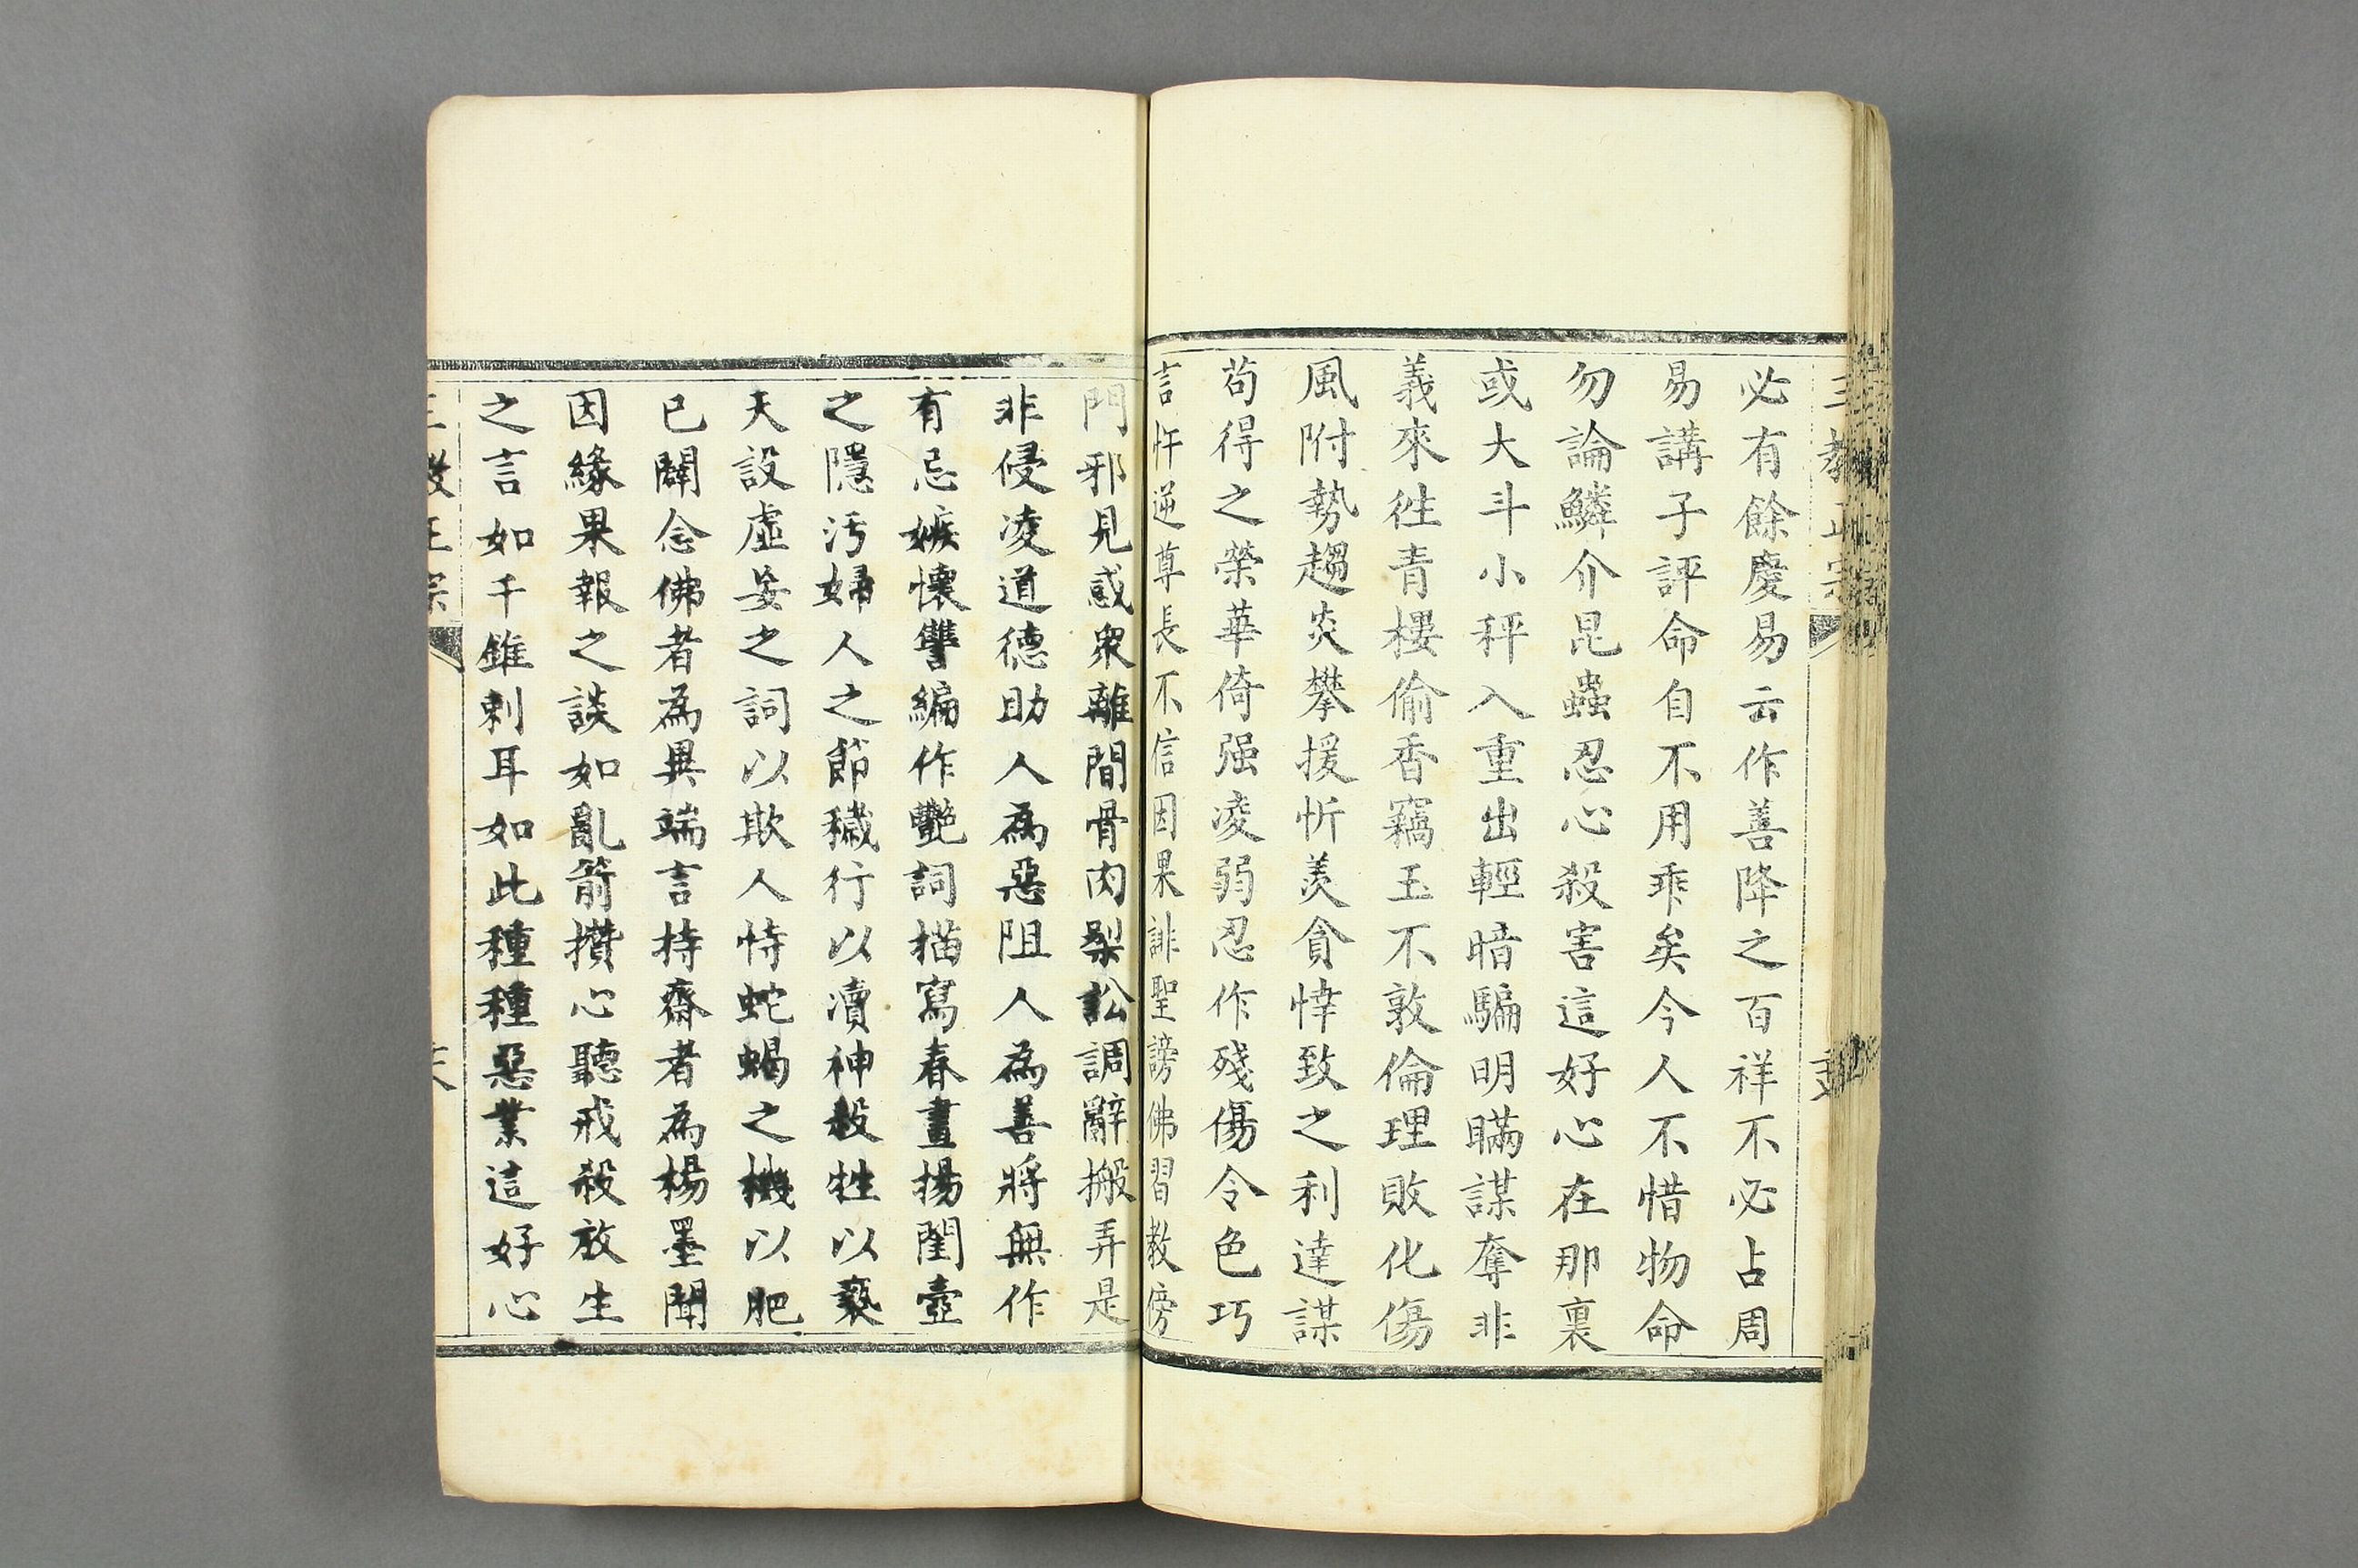 三教正宗
必有餘慶易云作善降之百祥不必占周
易講子評命自不用乖矣今人不惜物命
勿論鱗介昆蟲忍心殺害這好心在那裏
或大斗小秤入重出輕暗騙明瞞謀奪非
義來徃青樓偷香竊玉不敦倫理敗化傷
風附勢趨炎攀援忻羨貪悻致之利達謀
苟得之榮華倚强凌弱忍作殘傷令色巧
言忤逆尊長不信因果誹聖謗佛習教傍
門邪見惑衆離間骨肉梨訟調辭搬弄是
非侵凌道德助人為惡阻人為善將無作
有忌嫉懷讐編作艷詞描寫春畫揚閨壼
之隱汚婦人之節穢行以凟神殺牲以褻
天設虛妄之詞以欺人恃蛇蝎之機以肥
已闢念佛者為異端言持齋者為楊墨聞
因緣果報之談如亂箭攢心聽戒殺放生
之言如千錐刺耳如此種種惡業這好心
三教正宗